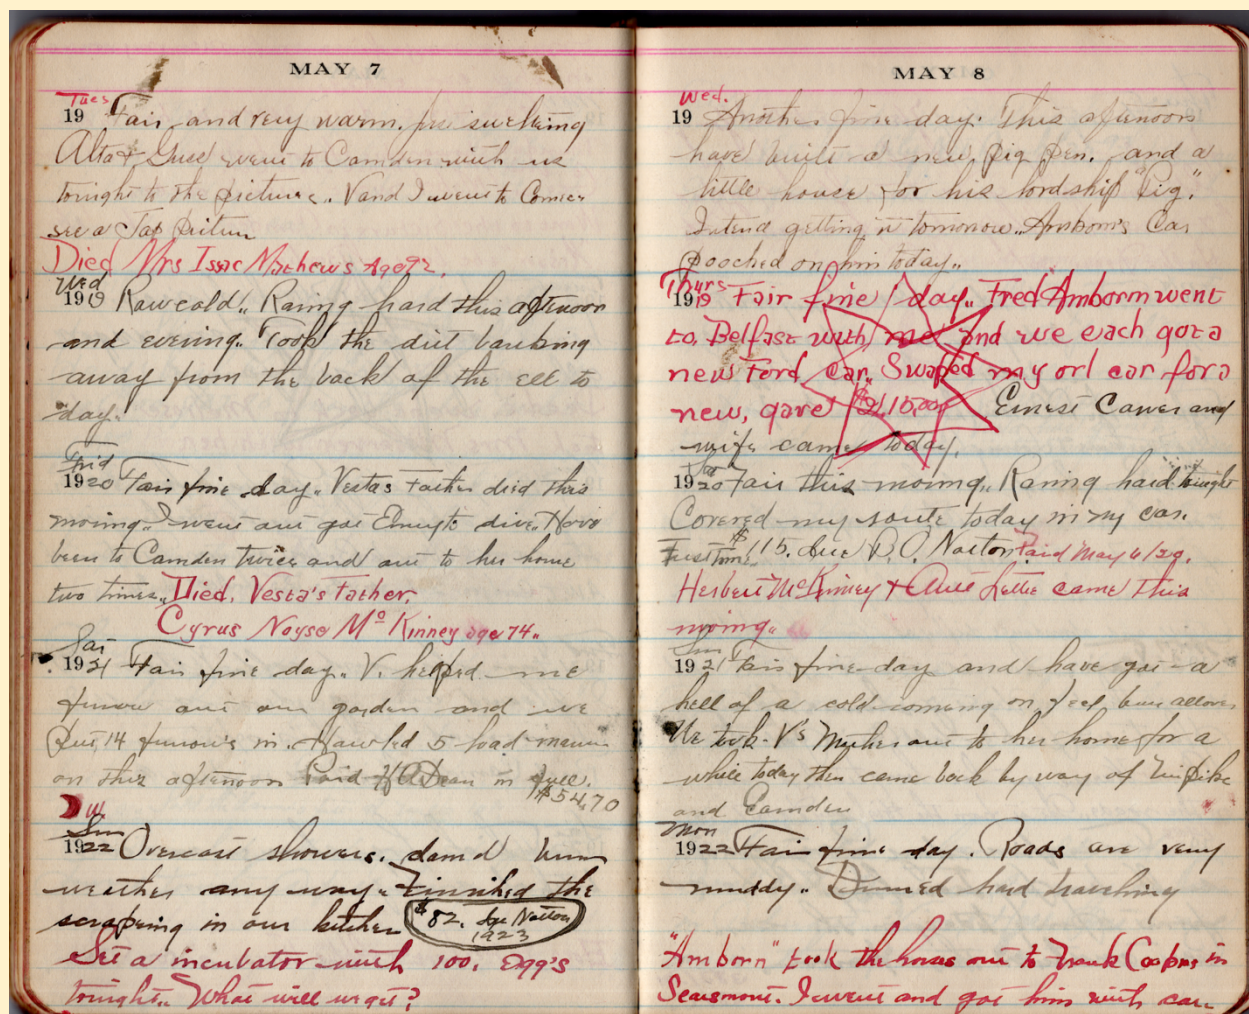 MAY 7
Tues
19 Fair and very warm.
Alta & went to Camden with us
tonight to the pictures. V and I went to Comice
see a Jap Picture
Died Mrs Isaac Mathews Age 92.
Wed
1919 Raw cold.. Raning hard this afternoon
and evening.. Took the dirt banking
away from the back of the ell to
day.
Frid
1920 Fair fine day.. Vesta's Father died this
morning.. I went out got Emery to dive.. Have
been to Camden twice and out to her home
two times.. Died. Vesta's Father.
Cyrus Noyse Mc Kinney age 74..
Sat
1921 Fair fine day.. V. helped me
furrow out our garden and we
Put 14 furrow's in. Hawled 5 load manure
on this afternoon Paid H A Dean in full.
$54.70
D W.
Sun
1922 Overcast showers. damd
weather any way.. Finnished the
scraping in our kitchen $82. due Nolton
1923
Set a incubator with 100. Egg's
tonight.. What will we get?
MAY 8
Wed.
19 Another fine day. This afternoon
have built a new, pig pen. and a
little house for his lordship "Pig".
Intend getting it tomorrow.. Amborn's Car
pooched on him today..
Thurs
1919 Fair fine day.. Fred Amborn went
to. Belfast with me and we each got a
new Ford car. Swaped my orl car for a
new, gave $215.00 Ernest Cawes and
wife came today.
Sat
1920 Fair this morning.. Raning hard tonight
Covered my route today in my car.
First time. $15. due R. O. Nolton Paid May 6/20.
Herbert McKinney & Aunt Lettie came this
morning..
Sun
1921 Fair fine day and have got a
hell of a cold coming on, feel bum all over
We took V's Mother out to her home for a
while today then came back by way of Linpike
and Camden
Mon
1922 Fair fine day. Roads are very
muddy.. Damed hard traveling
"Amborn" took the horse out to Frank Coopers in
Searsmont. I went and got him with car..